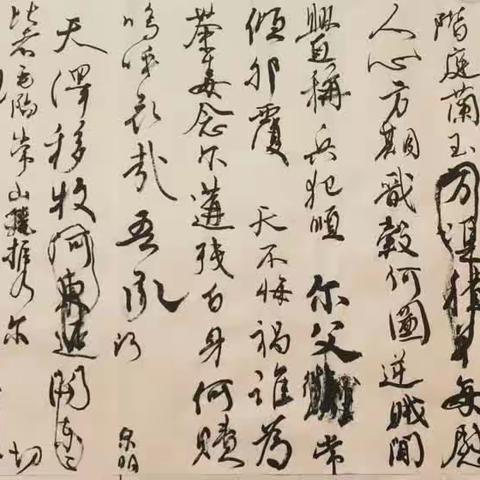 階庭蘭玉方憑積善每慰
人心方期戩穀何圖逆賊閒
釁稱兵犯順 爾父 常
傾卵覆 天不悔禍誰為
荼毒念爾遘殘百身何贖
嗚呼哀哉 吾承 泉明
天澤移牧河東近河關
比者再陷常山攜 爾 切